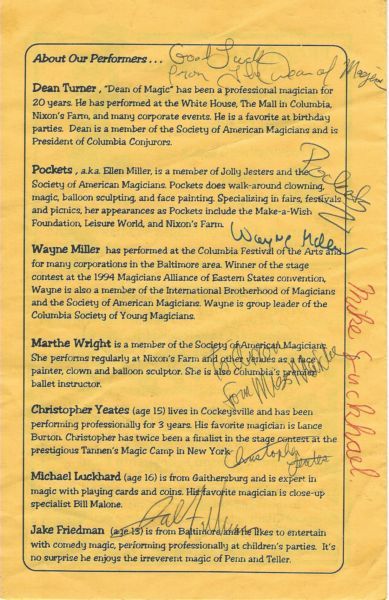 About Our Performers . . .
Good Luck
from The Dean of Magic
Dean Turner , "Dean of Magic" has been a professional magician for
20 years. He has performed at the White House, The Mall in Columbia,
Nixon's Farm, and many corporate events. He is a favorite at birthday
parties. Dean is a member of the Society of American Magicians and is
President of Columbia Conjurors.
Pockets
Pockets , a.k.a. Ellen Miller, is a member of Jolly Jesters and the
Society of American Magicians. Pockets does walk-around clowning,
magic, balloon sculpting, and face painting. Specializing in fairs, festivals
and picnics, her appearances as Pockets include the Make-a-Wish
Foundation, Leisure World, and Nixon's Farm.
Wayne Miller
Wayne Miller has performed at the Columbia Festival of the Arts and
for many corporations in the Baltimore area. Winner of the stage
contest at the 1994 Magicians Alliance of Eastern States convention,
Wayne is also a member of the International Brotherhood of Magicians
and the Society of American Magicians. Wayne is group leader of the
Columbia Society of Young Magicians.
Mike Luckhard
Marthe Wright is a member of the Society of American Magicians.
She performs regularly at Nixon's Farm and other venues as a face
painter, clown and balloon sculptor. She is also Columbia's premier
ballet instructor.
from Miss Marthe
Christopher Yeates (age 15) lives in Cockeysville and has been
performing professionally for 3 years. His favorite magician is Lance
Burton. Christopher has twice been a finalist in the stage contest at the
prestigious Tannen's Magic Camp in New York.
Christopher Yeates
Michael Luckhard (age 16) is from Gaithersburg and is expert in
magic with playing cards and coins. His favorite magician is close-up
specialist Bill Malone.
Jake Friedman (age 13) is from Baltimore and he likes to entertain
with comedy magic, performing professionally at children's parties. It's
no surprise he enjoys the irreverent magic of Penn and Teller.